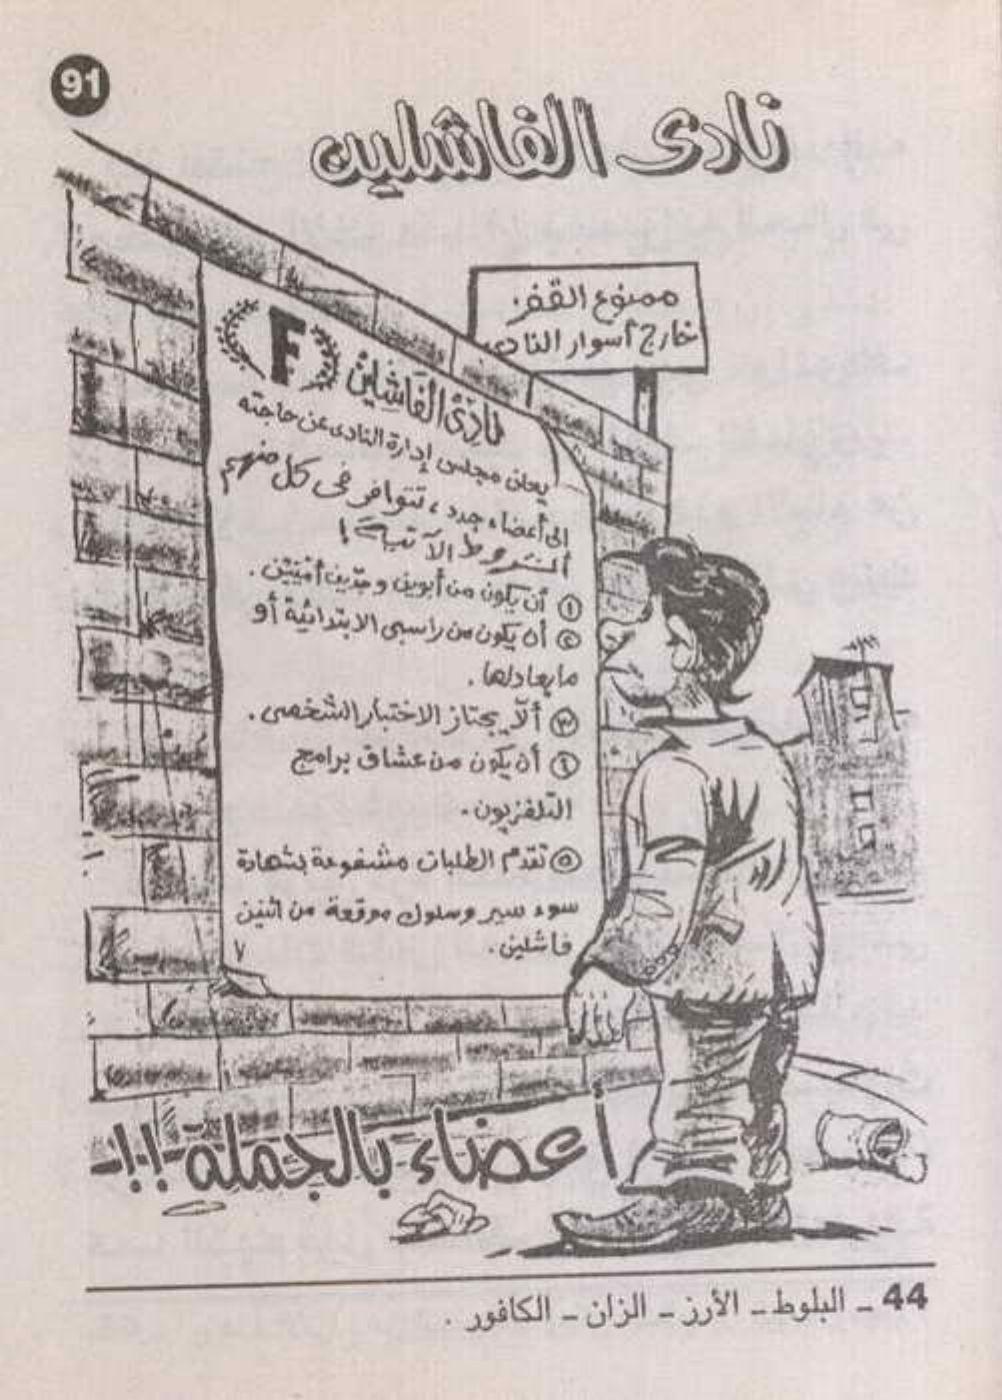 91
نادى الفاشلين
ممنوع القفز
خارج أسوار النادى
F
نادى الفاشلين
يعلن مجلس إدارة النادى عن حاجته
إلى أعضاء جدد، تتوافر فى كل منهم
الشروط الآتية !
١ أن يكون من أبوين وجدين أميين .
٢ أن يكون من راسبى الابتدائية أو
ما يعادلها .
٣ ألّا يجتاز الاختبار الشخصى .
٤ أن يكون من عشاق برامج
التلفزيون .
٥ تقدم الطلبات مشفوعة بشهادة
سوء سير وسلوك موقعة من اثنين
فاشلين .
٧
أعضاء بالجملة !!
44 ـ البلوط ـ الأرز ـ الزان ـ الكافور .